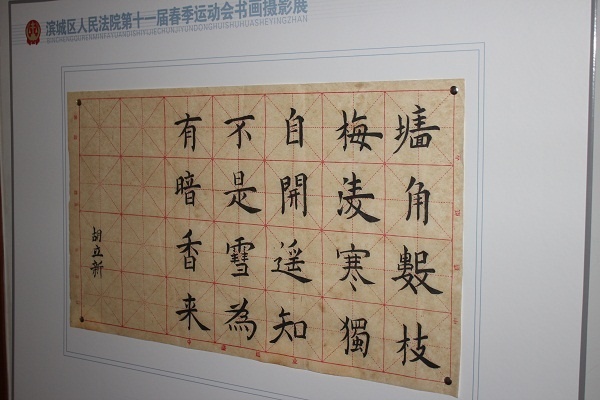 滨城区人民法院第十一届春季运动会书画摄影展
BINCHENGQURENMINFAYUANDISHIYIJIECHUNJIYUNDONGHUISHUHUASHEYINGZHAN
墻角數枝
梅淩寒獨
自開遥知
不是雪為
有暗香来
胡立新